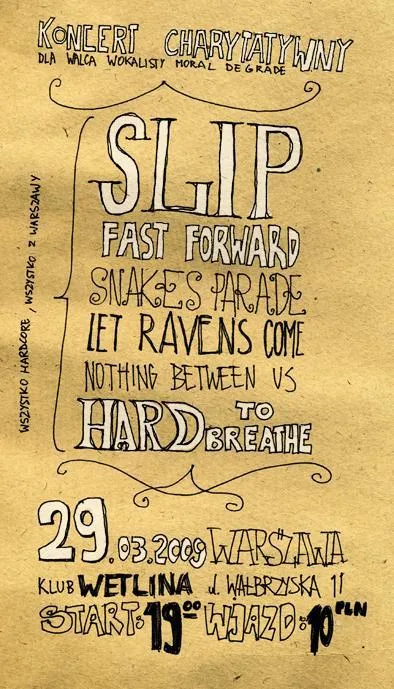 KONCERT CHARYTATYWNY
DLA WALCA WOKALISTY MORAL DEGRADE
WSZYSTKO HARDCORE, WSZYSTKO Z WARSZAWY
SLIP
FAST FORWARD
SNAKES PARADE
LET RAVENS COME
NOTHING BETWEEN US
HARD TO BREATHE
29.03.2009 WARSZAWA
KLUB WETLINA ul. WAŁBRZYSKA 11
START: 19⁰⁰ WJAZD: 10 PLN